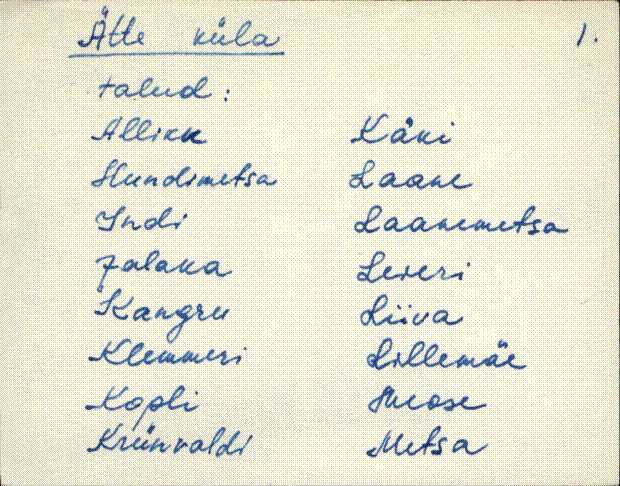 Ätte küla
1.
talud:
Alliku
Hundimetsa
Indi
Jalaka
Kangru
Klemmeri
Kopli
Krünvaldi
Käki
Laane
Laanemetsa
Liiva
Lillemäe
Metsa